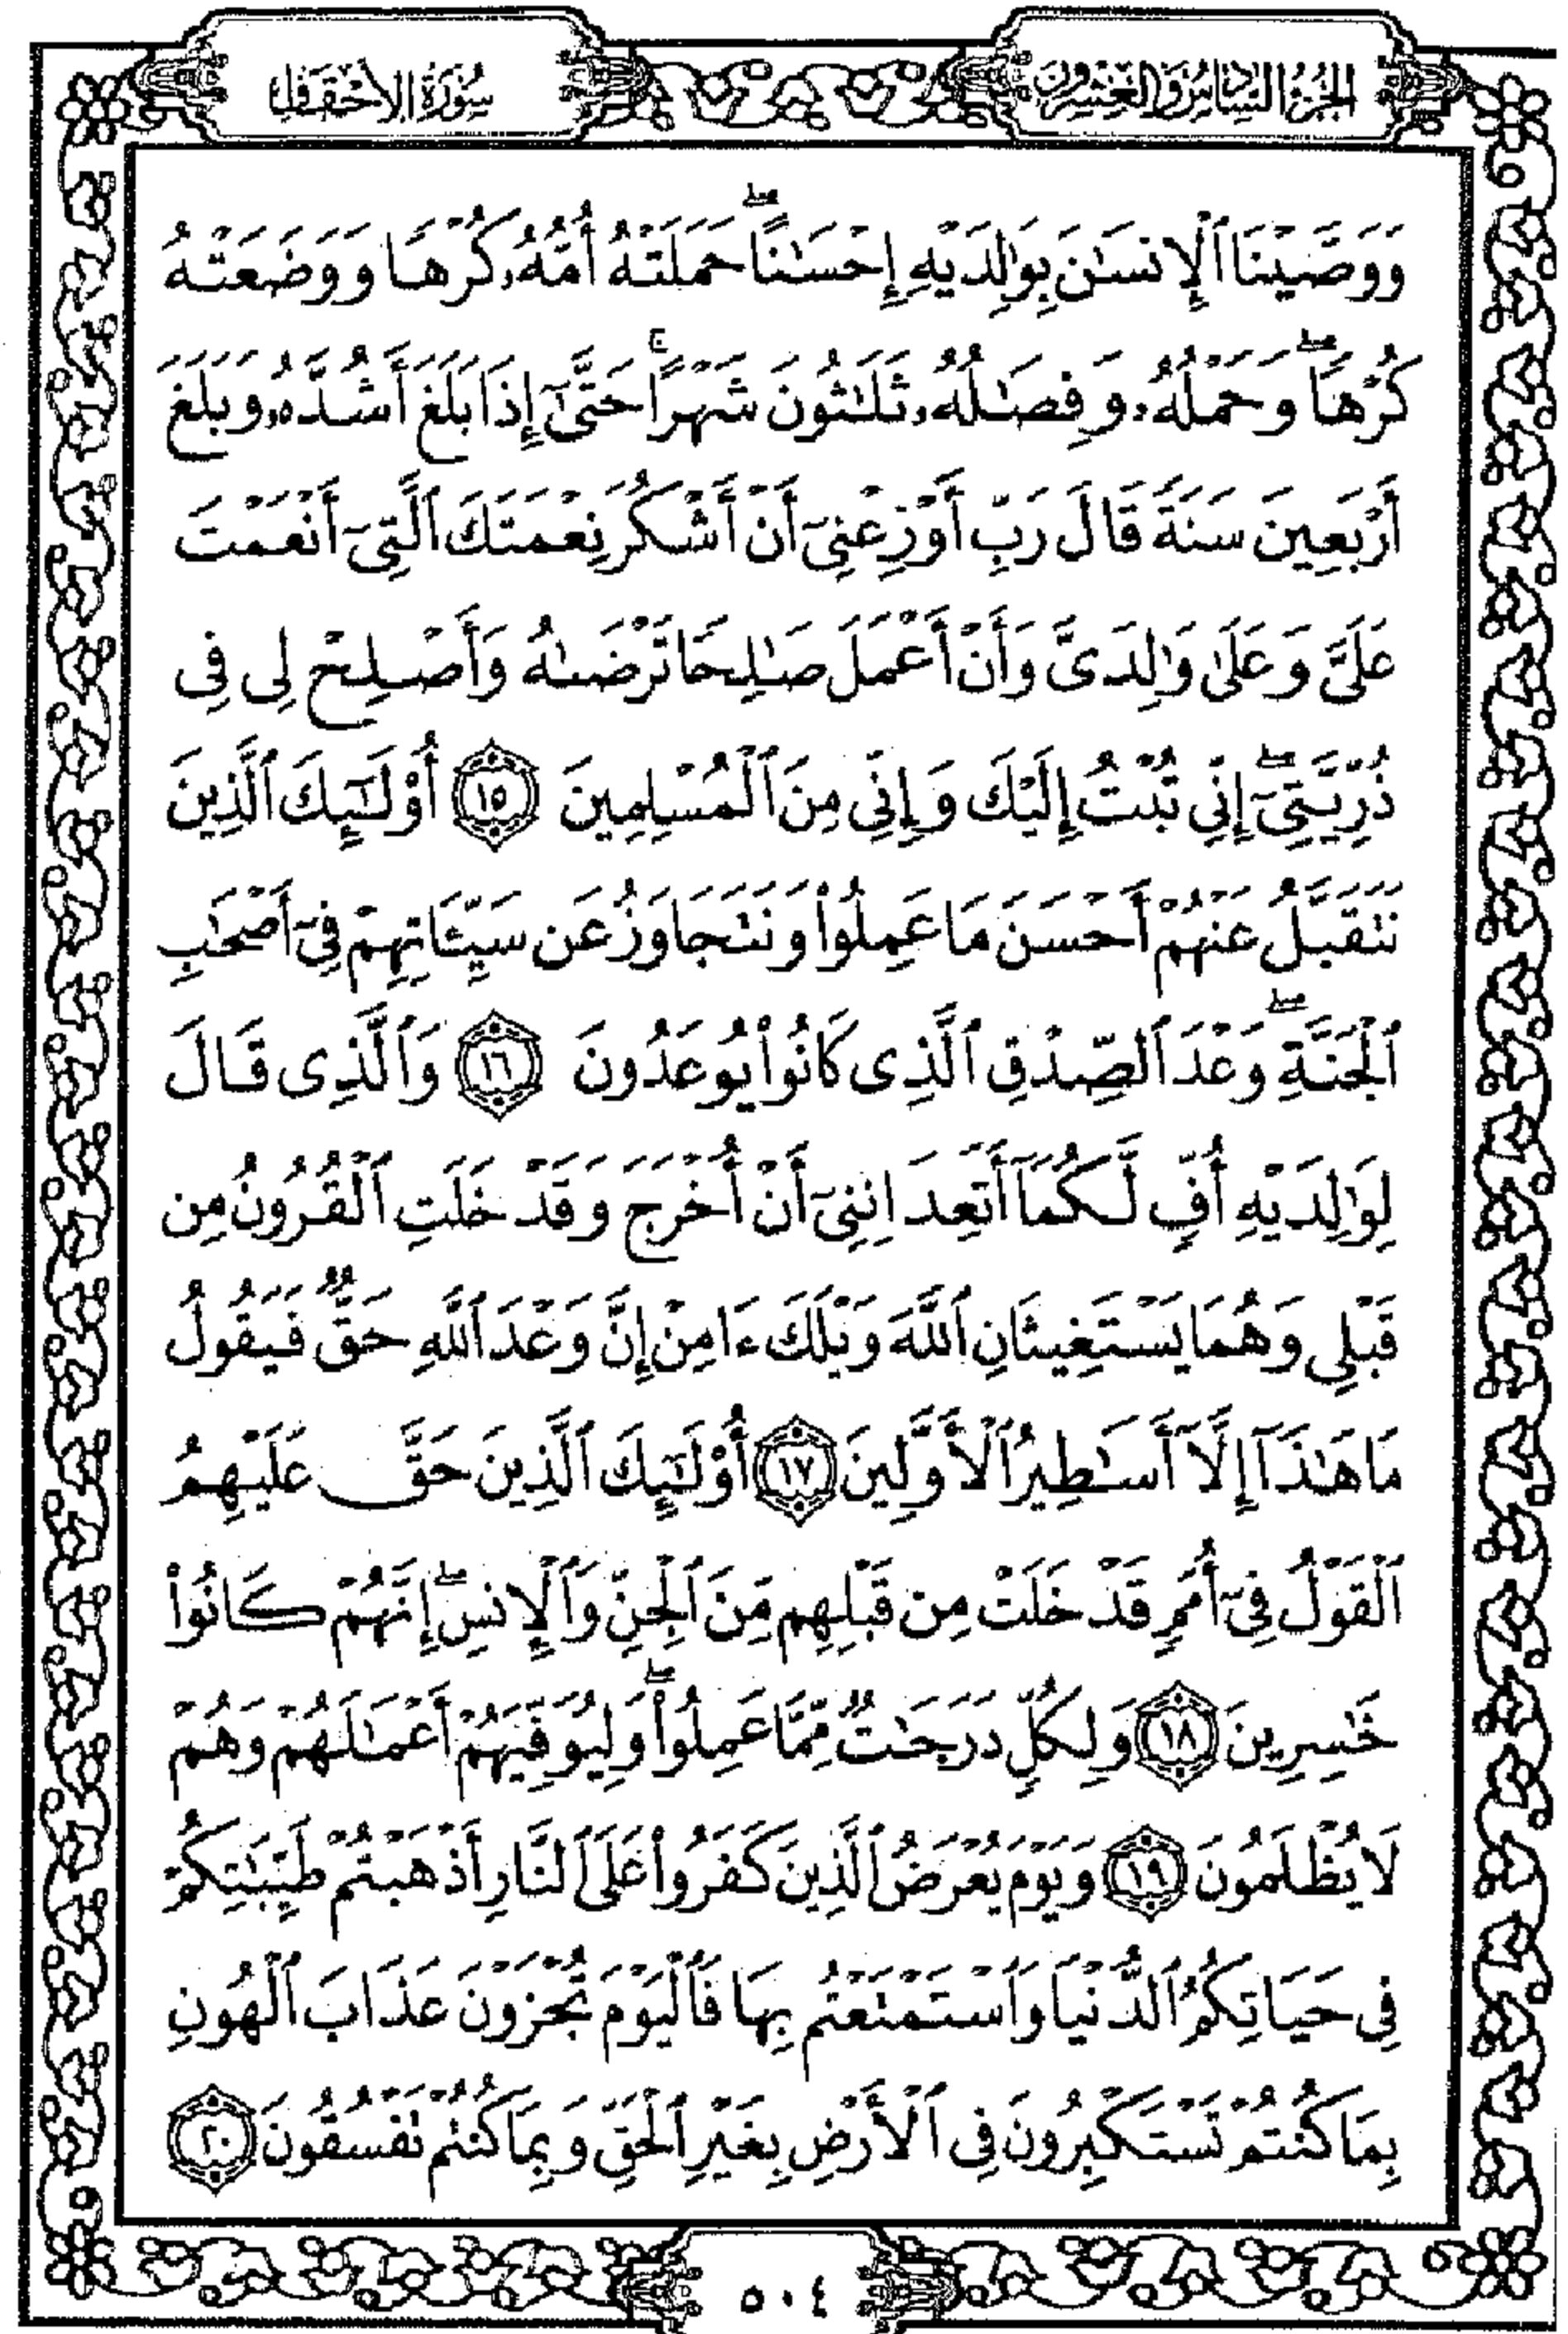 الجزء السادس والعشرون
سورة الأحقاف
وَوَصَّيْنَا ٱلْإِنسَٰنَ بِوَٰلِدَيْهِ إِحْسَٰنًاۖ حَمَلَتْهُ أُمُّهُۥ كُرْهًا وَوَضَعَتْهُ
كُرْهًاۖ وَحَمْلُهُۥ وَفِصَٰلُهُۥ ثَلَٰثُونَ شَهْرًاۚ حَتَّىٰٓ إِذَا بَلَغَ أَشُدَّهُۥ وَبَلَغَ
أَرْبَعِينَ سَنَةً قَالَ رَبِّ أَوْزِعْنِىٓ أَنْ أَشْكُرَ نِعْمَتَكَ ٱلَّتِىٓ أَنْعَمْتَ
عَلَىَّ وَعَلَىٰ وَٰلِدَىَّ وَأَنْ أَعْمَلَ صَٰلِحًا تَرْضَىٰهُ وَأَصْلِحْ لِى فِى
ذُرِّيَّتِىٓۖ إِنِّى تُبْتُ إِلَيْكَ وَإِنِّى مِنَ ٱلْمُسْلِمِينَ ١٥ أُو۟لَٰٓئِكَ ٱلَّذِينَ
نَتَقَبَّلُ عَنْهُمْ أَحْسَنَ مَا عَمِلُوا۟ وَنَتَجَاوَزُ عَن سَيِّـَٔاتِهِمْ فِىٓ أَصْحَٰبِ
ٱلْجَنَّةِۖ وَعْدَ ٱلصِّدْقِ ٱلَّذِى كَانُوا۟ يُوعَدُونَ ١٦ وَٱلَّذِى قَالَ
لِوَٰلِدَيْهِ أُفٍّ لَّكُمَآ أَتَعِدَانِنِىٓ أَنْ أُخْرَجَ وَقَدْ خَلَتِ ٱلْقُرُونُ مِن
قَبْلِى وَهُمَا يَسْتَغِيثَانِ ٱللَّهَ وَيْلَكَ ءَامِنْ إِنَّ وَعْدَ ٱللَّهِ حَقٌّ فَيَقُولُ
مَا هَٰذَآ إِلَّآ أَسَٰطِيرُ ٱلْأَوَّلِينَ ١٧ أُو۟لَٰٓئِكَ ٱلَّذِينَ حَقَّ عَلَيْهِمُ
ٱلْقَوْلُ فِىٓ أُمَمٍ قَدْ خَلَتْ مِن قَبْلِهِم مِّنَ ٱلْجِنِّ وَٱلْإِنسِۖ إِنَّهُمْ كَانُوا۟
خَٰسِرِينَ ١٨ وَلِكُلٍّ دَرَجَٰتٌ مِّمَّا عَمِلُوا۟ۖ وَلِيُوَفِّيَهُمْ أَعْمَٰلَهُمْ وَهُمْ
لَا يُظْلَمُونَ ١٩ وَيَوْمَ يُعْرَضُ ٱلَّذِينَ كَفَرُوا۟ عَلَى ٱلنَّارِ أَذْهَبْتُمْ طَيِّبَٰتِكُمْ
فِى حَيَاتِكُمُ ٱلدُّنْيَا وَٱسْتَمْتَعْتُم بِهَا فَٱلْيَوْمَ تُجْزَوْنَ عَذَابَ ٱلْهُونِ
بِمَا كُنتُمْ تَسْتَكْبِرُونَ فِى ٱلْأَرْضِ بِغَيْرِ ٱلْحَقِّ وَبِمَا كُنتُمْ تَفْسُقُونَ ٢٠
٥٠٤